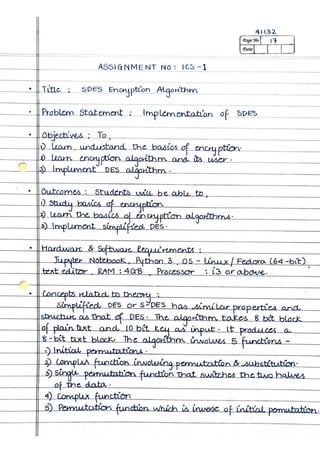 41132
Page No. 17
Date
ASSIGNMENT NO : ICS -1
• Title : SDES Encryption Algorithm
• Problem Statement : Implementation of SDES
• Objectives : To,
1) learn, understand the basics of encryption.
2) learn encryption algorithm and its user.
3) Implement DES algorithm.
• Outcomes : Students will be able to,
1) Study basics of encryption
2) learn the basics of encryption algorithms.
3) Implement simplified DES.
• Hardware & Software Requirements :
Jupyter Notebook, Python 3, OS - Linux / Fedora (64-bit)
text editor, RAM : 4GB, Processor : i3 or above.
• Concepts related to theory :
Simplified DES or S-DES has similar properties and
structure as that of DES. The algorithm takes 8 bit block
of plain text and 10 bit key as input. It produces a
8-bit text block. The algorithm involves 5 functions -
1) Initial permutations.
2) Complex function involving permutation & substitution.
3) Single permutation function that switches the two halves
of the data.
4) Complex function
5) Permutation function which is inverse of initial permutation.